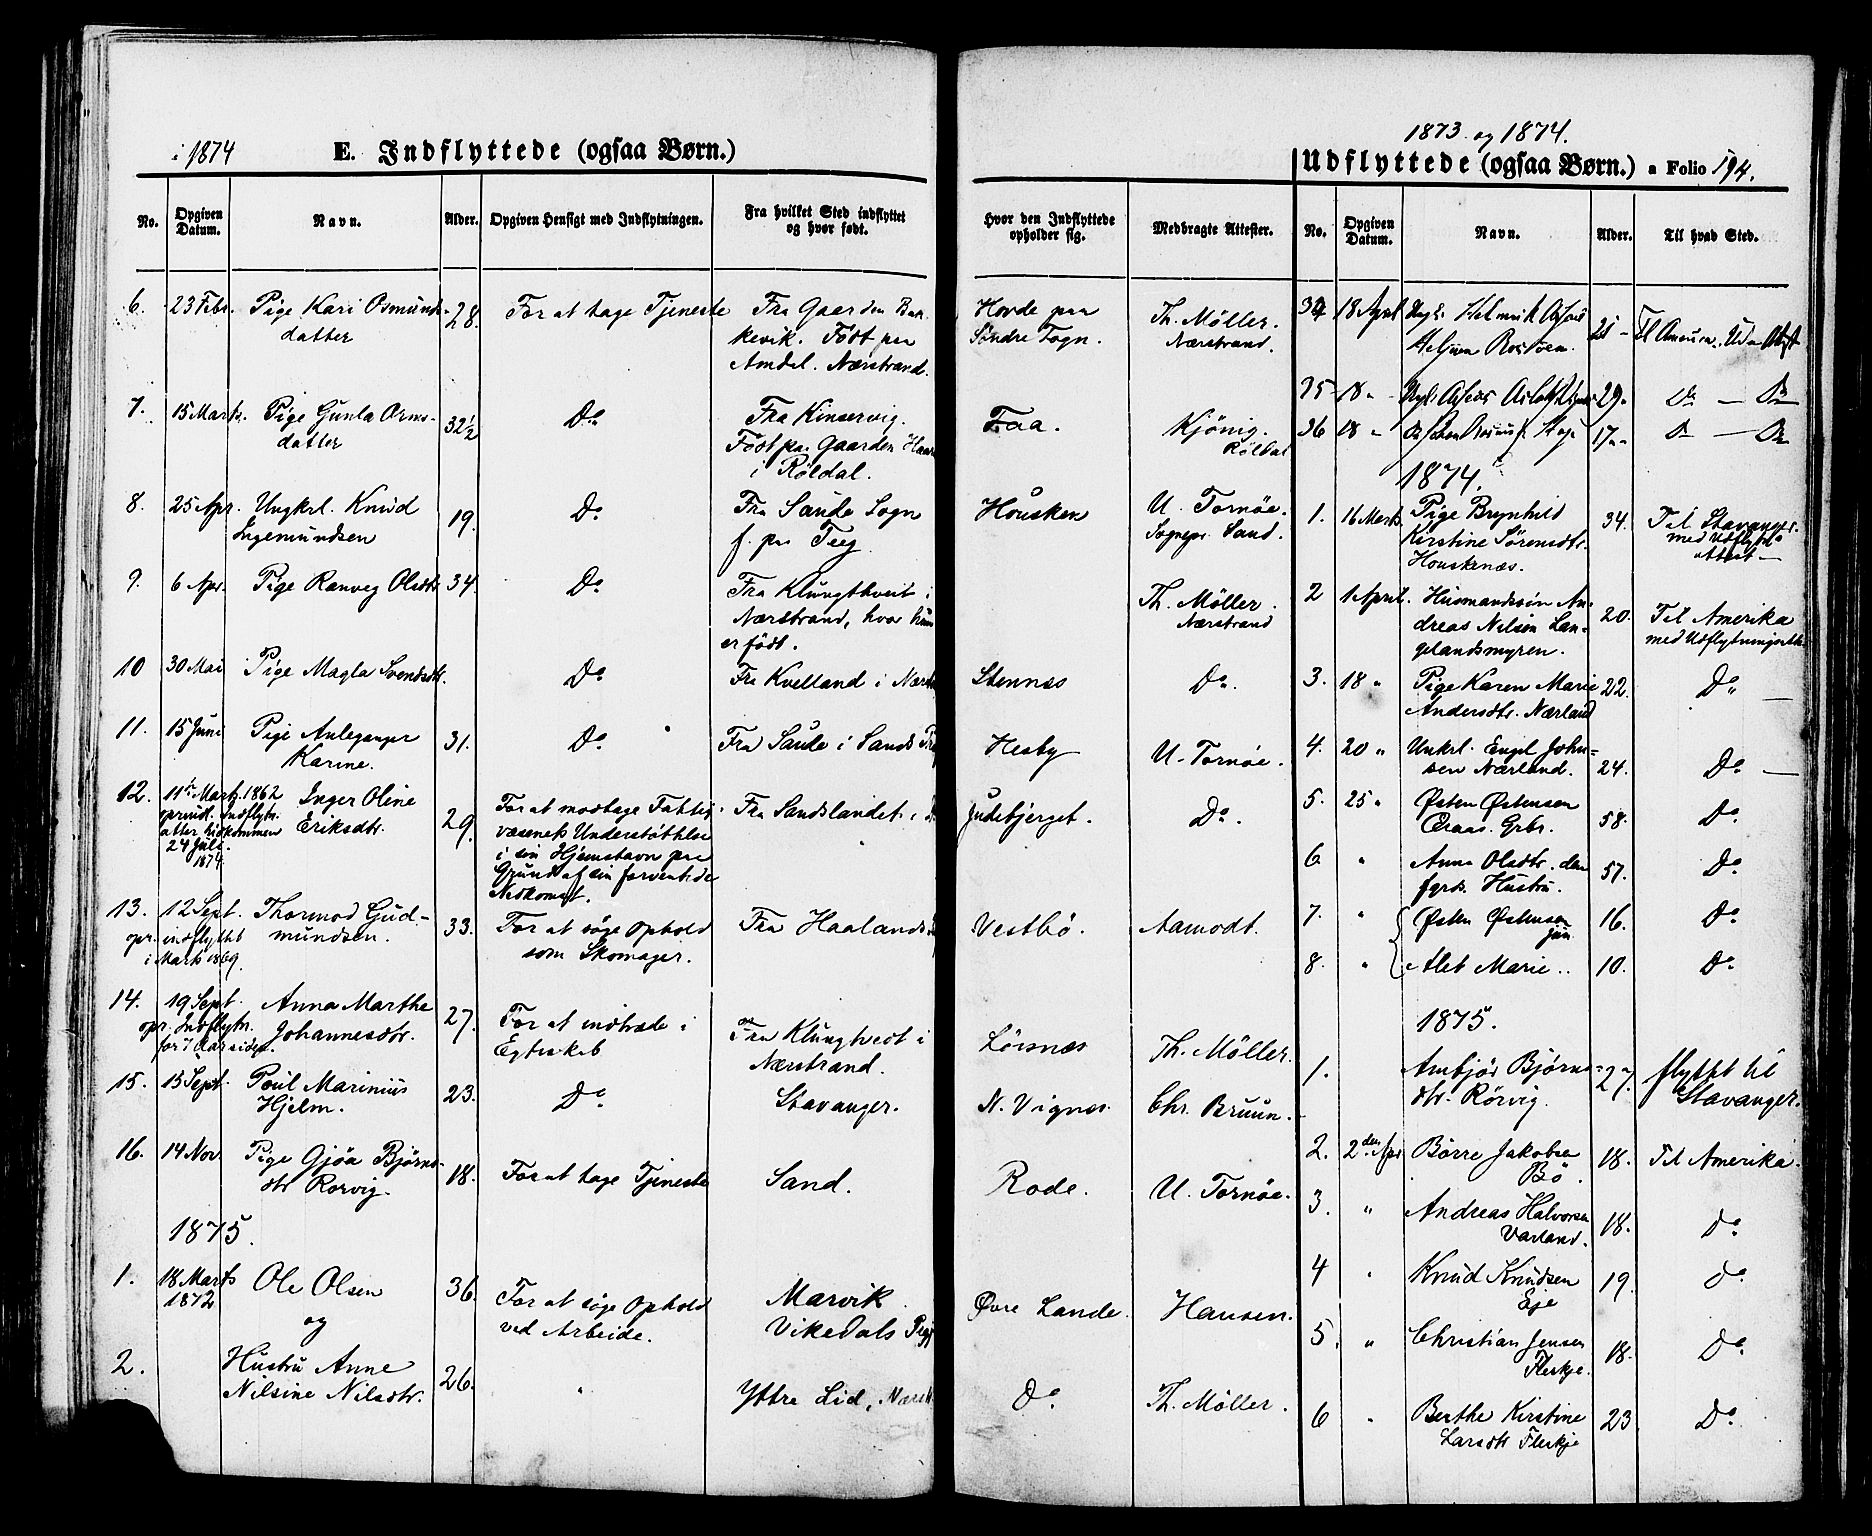 i 1874
E. Indflyttede (ogsaa Børn.)
No.
Opgiven Datum.
Navn.
Alder.
Opgiven Hensigt med Indflytningen.
Fra hvilket Sted indflyttet
og hvor født.
Hvor den Indflyttede
opholder sig.
Medbragte Attester.
6. 23 Febr. Pige Kari Osmunds- 28. For at tage Tjeneste Fra Gaarden Bak- Hovde paa Th. Møller.
datter kevik. Født paa Søndre Fogn. Nærstrand.
Amdal. Nærstrand.
7. 15 Marts. Pige Gunla Orms- 32½ Do Fra Kinservig. Faa. Kjönig.
datter Født paa Gaarden Røldal
i Røldal.
8. 25 Apr. Ungkrl. Knud 19. Do Fra Saude Sogn Housken U. Tornøe.
Ingemundsen f. paa Sognepr. Sand.
9. 6 Apr. Pige Ranveg Olsdtr. 34. Do Fra Klungtveit i Th. Møller.
Nærstrand, hvor hun Nærstrand
er født.
10 30 Mai Pige Magla Svendsdtr. Do Fra Kvelland i Nærst Stennes Do.
11. 15 Juni Pige Anleganger 31. Do Fra Saude i Sands Pr Hesby U. Tornøe.
Karine.
12. 11te Marts 1862 Inger Oline 29. For at modtage Fattig- Fra Sandslandet i Judebjerget. Do.
oprind. Indflytn. Eriksdtr. væsenets Understøttelse
atter hidkommen i sin Hjemstavn paa
24 Juli. Grund af sin forventede
1874. Nedkomst.
13. 12 Sept. Thormod Gud- 33. For at søge Ophold Fra Haalands Vestbö. Aamodt.
opr. indflyttet mundsen. som Skomager.
i Marts 1869.
14. 19 Sept. Anna Marthe 27. For at indtræde i Fra Klungtvedt i Lörsnes Th. Møller.
opr. Indflytn. Johannesdtr. Egteskab Nærstrand.
for 7 Aar siden.
15. 15 Sept. Poul Marinius 23. Do Stavanger. N. Vignes. Chr. Bruun.
Hjelm.
16. 14 Nov. Pige Gjøa Bjørns- 18. For at tage Tjeneste Sand. Rode. U. Tornøe.
dtr Rørvig.
1875.
1. 18 Marts Ole Olsen 36. For at søge Ophold Marvik Øvre Lande. Hansen.
1872 og ved Arbeide. Vikedals Prgj
2. Hustru Anne 26. " Yttre Lid, Nærst Do. Th. Møller.
Nilsine Nilsdtr.
1873 og 1874.
Udflyttede (ogsaa Børn.) a Folio 194.
No.
Opgiven Datum.
Navn.
Alder.
Til hvad Sted.
34 18 April 21 - Til
35 18 " 29 " Do — Do
36 18 " 17 " Do — Do
1874.
1. 16 Marts. Pige Brynhild 34. Til Stavanger.
Kirstine Sörensdtr. med Udflytn.
Houskenæs. Attest —
2 1 April. Husmandssön An- 20. Til Amerika
dreas Nilsen Lan- med Udflytningsatt.
gelandsmyren.
3. 18 " Pige Karen Marie 22. Do —
Andersdtr. Nærland
4. 20 " Unkrl. Engel John- 24. Do —
sen Nærland.
5. 25 " Østen Østensen 58. Do
Grbr.
6 " Anna Olsdtr. den 57. Do
Hustru.
7. " Østen Østensen jun 16. Do
8. " Alet Marie.. 10. Do
1875.
1. Ambjör Björns- 27. flyttet til
dtr. Rörvig. Stavanger.
2. 2den Apr Børre Jakobsen 18. Til Amerika.
Bö.
3. " Andreas Halvorsen 18. Do
Varland.
4 " Knud Knudsen 19. Do
Eje
5. " Christian Jensen 18. Do
Fleskje.
6 " Berthe Kirstine 23 Do
Larsdtr Fleskje